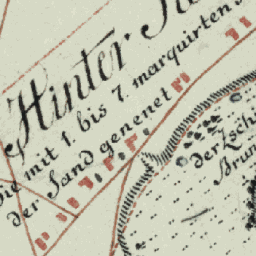 Hinter
die mit 1. bis 7. marquirten
der Sand genenet
der Zschi
Brun